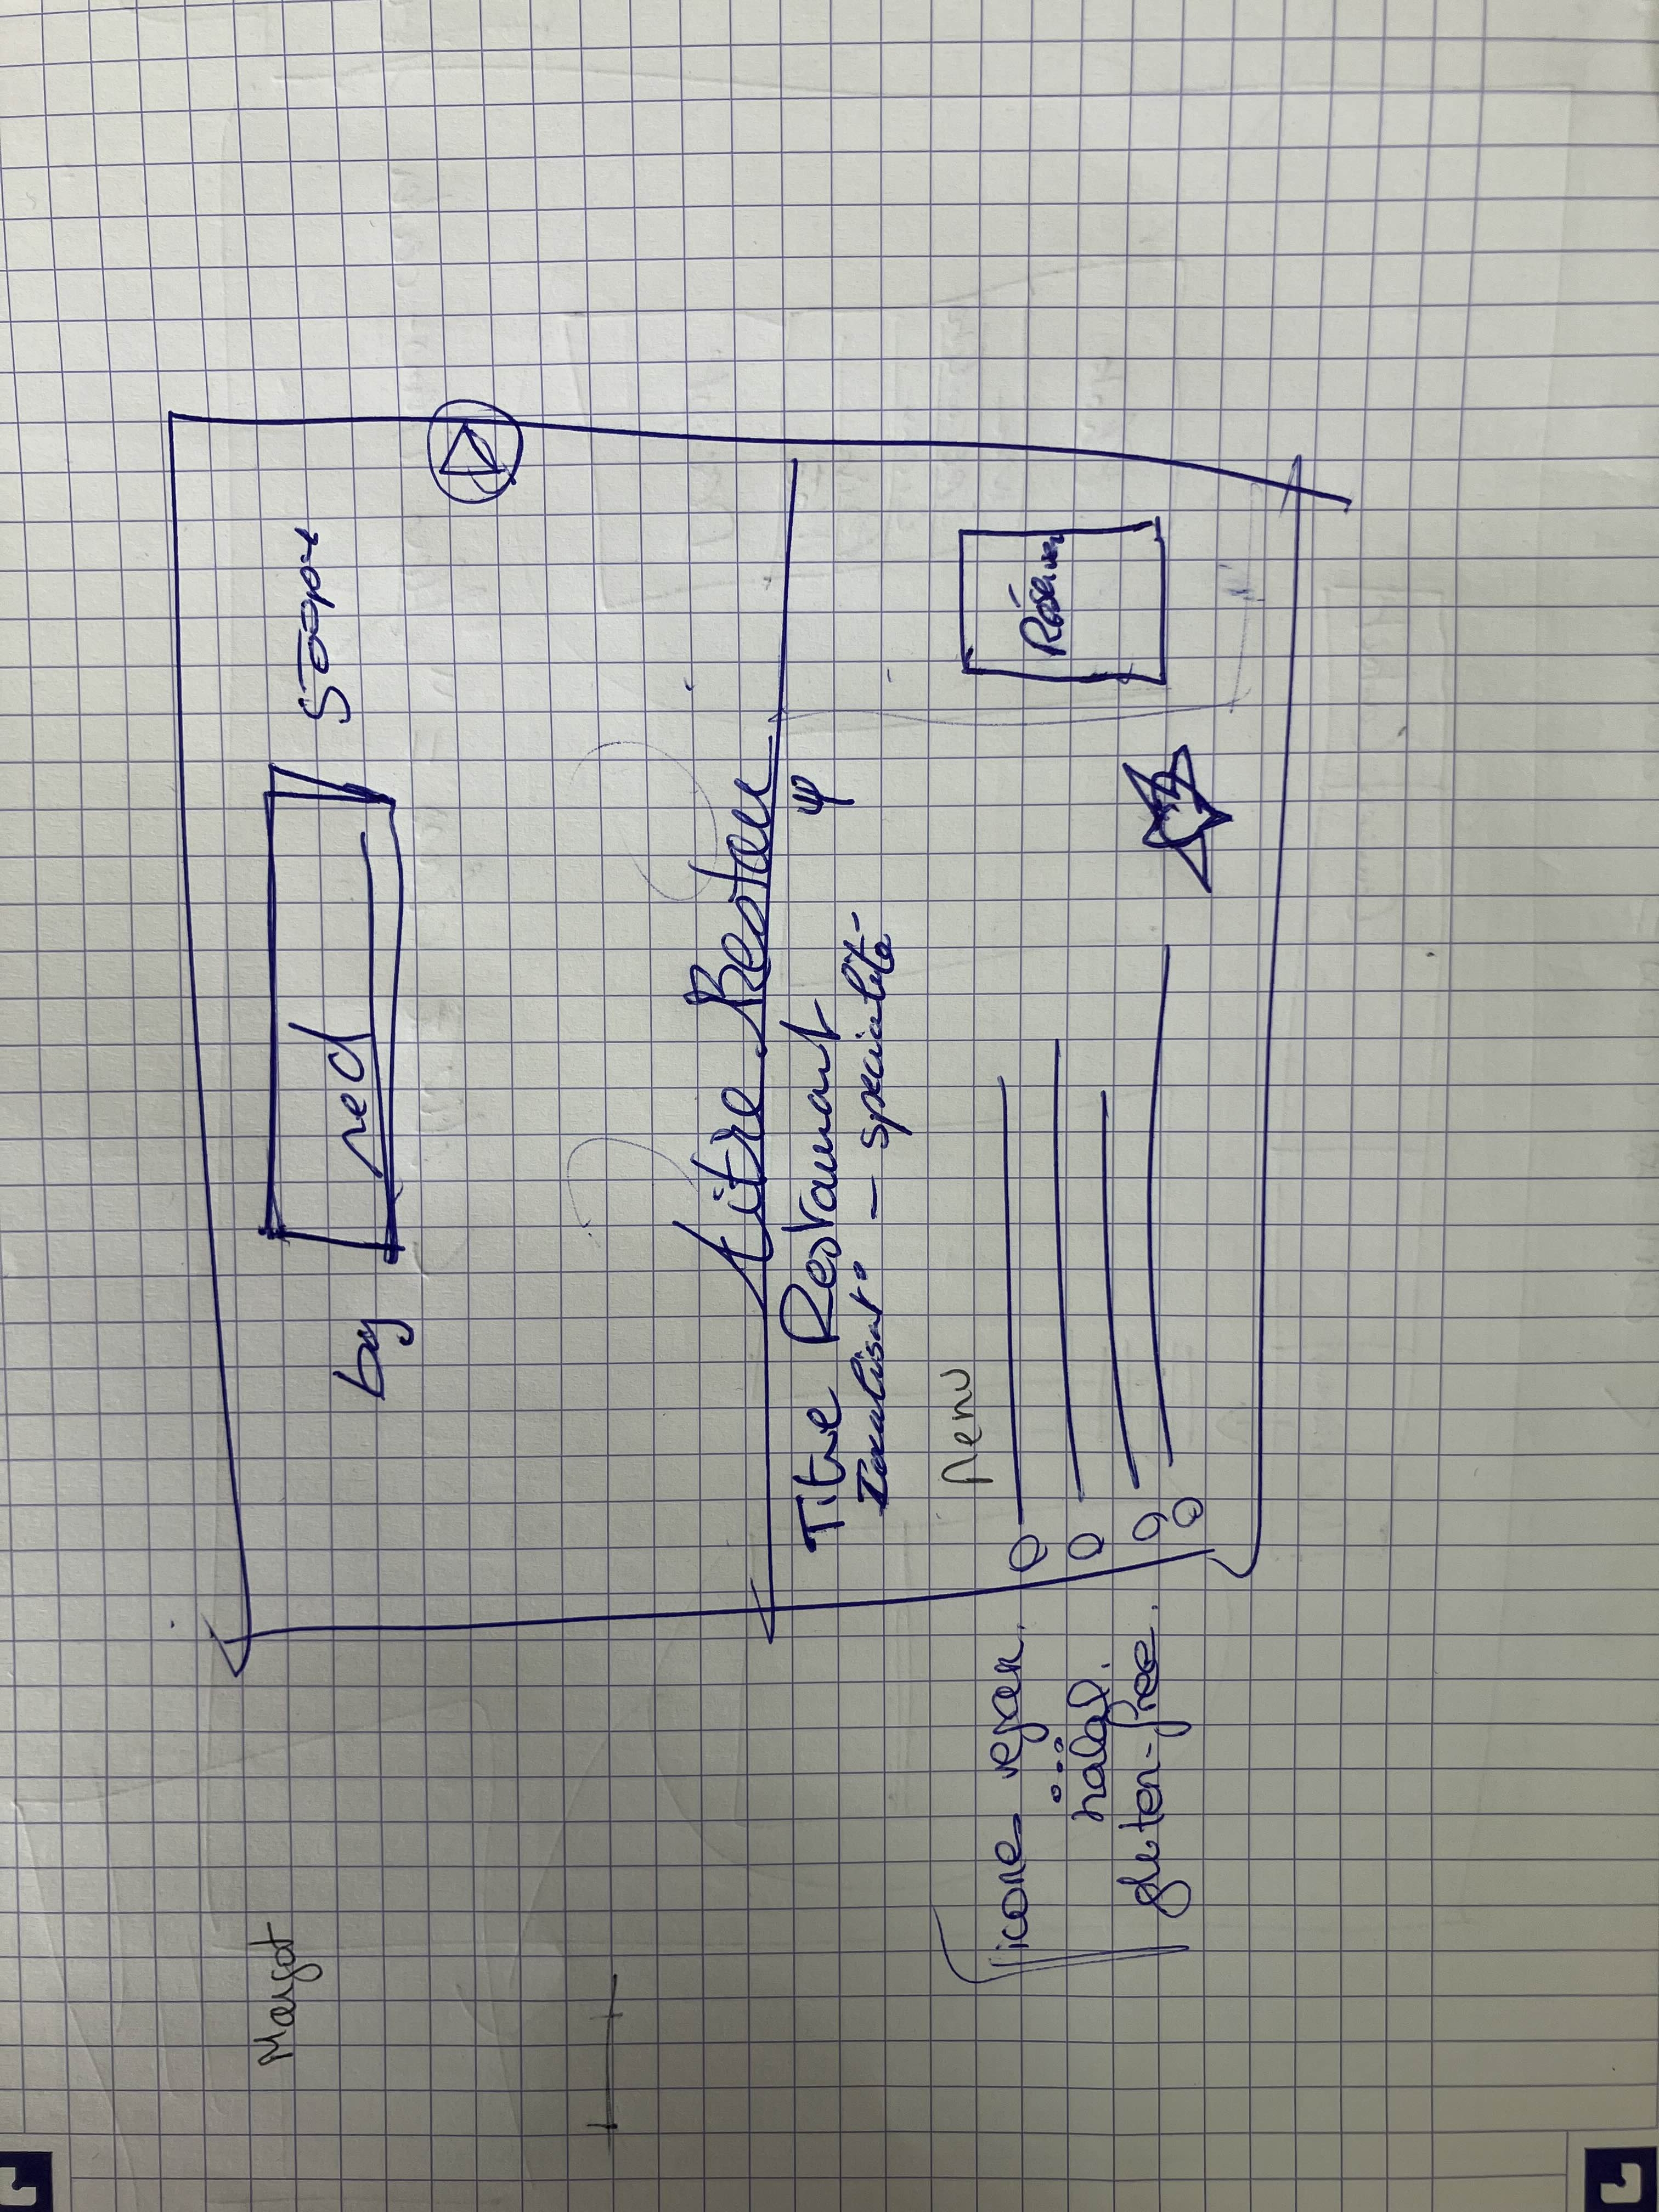 Margot
by red
titre Restau
Titre Restaurant
Localisat° - specialité
Menu
icones vegan.
halal.
gluten-free.
Réserver